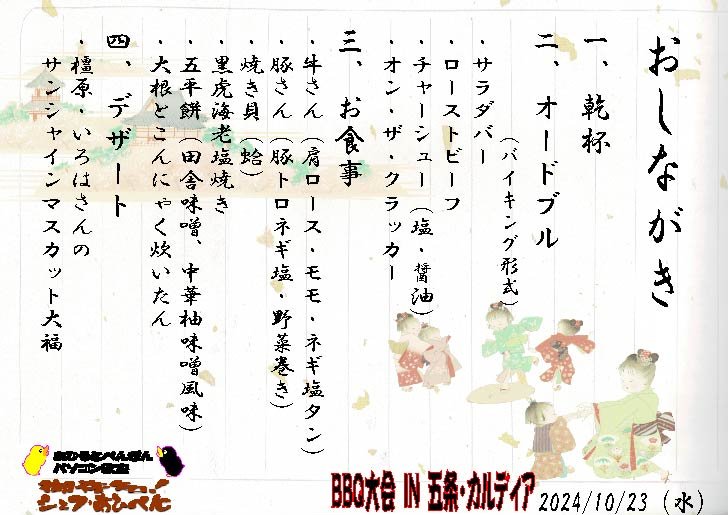 おしながき
一、乾杯
二、オードブル
(バイキング形式)
・サラダバー
・ローストビーフ
・チャーシュー(塩・醤油)
・オン・ザ・クラッカー
三、お食事
・牛さん(肩ロース・モモ・ネギ塩タン)
・豚さん(豚トロネギ塩・野菜巻き)
・焼き貝(蛤)
・黒虎海老塩焼き
・五平餅(田舎味噌、中華柚味噌風味)
・大根とこんにゃく炊いたん
四、デザート
・橿原・いろはさんの
サンシャインマスカット大福
パソコン教室
BBQ大会 IN 五条・カルディア
2024/10/23 (水)